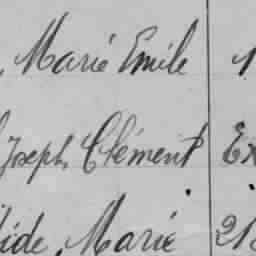 , Marie Emile 1
Joseph, Clément Ex
ide, Marie 21